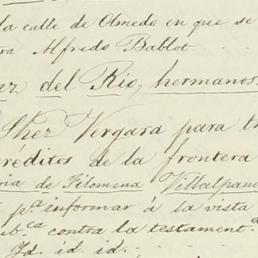 la calle de Olmedo en que se
ra Alfredo Bablot.
ez del Rio, hermanos.
Sher Vergara para t
réditos de la frontera
ria de Filomena Villalpan
pª informar á la vista
ub.ca contra la testament.a
Id. id. id.